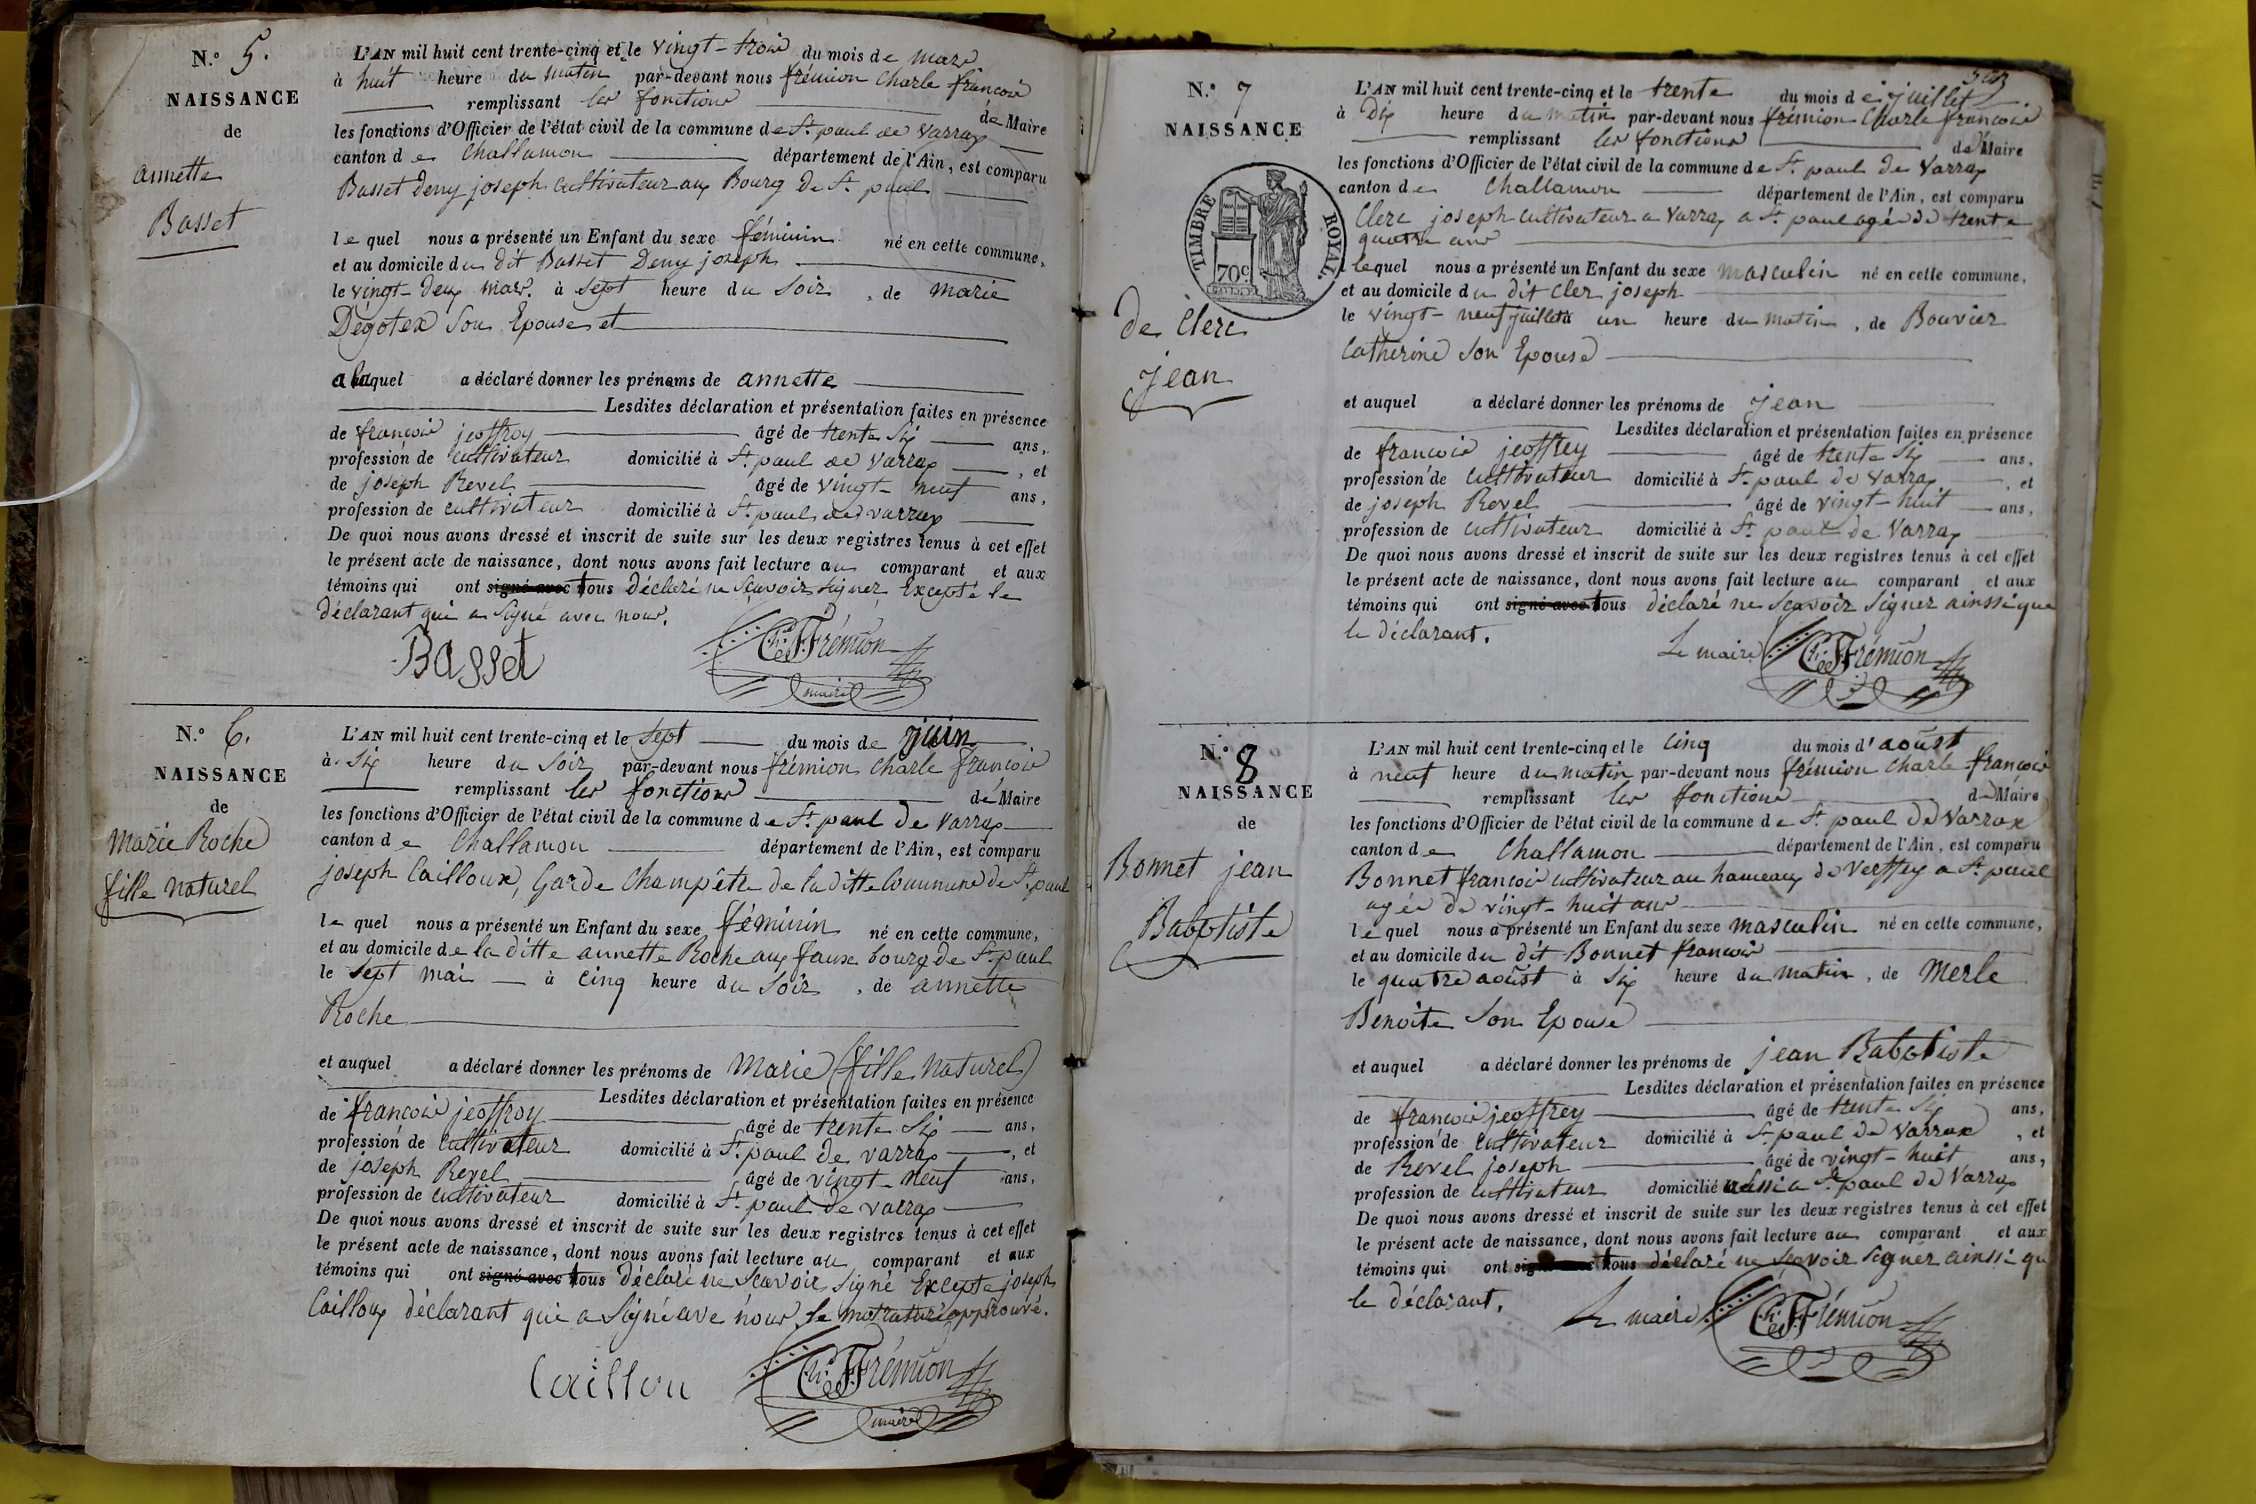 N.o 5.
NAISSANCE
de
annette
Basset
L'AN mil huit cent trente-cinq et le vingt-trois du mois de mars
à huit heure du matin par-devant nous frémion Charle françois
remplissant les fonctions de Maire
les fonctions d'Officier de l'état civil de la commune de St. paul de Varrax
canton de Challamon département de l'Ain, est comparu
Basset Deny joseph Cultivateur aux Bourg de St. paul
le quel nous a présenté un Enfant du sexe féminin né en cette commune,
et au domicile du dit Basset Deny joseph
le vingt-deux mars. à sept heure du soir, de marie
Degotex Son Epouse et
a laquel a déclaré donner les prénoms de annette
Lesdites déclaration et présentation faites en présence
de françois jeoffroy âgé de trente Six ans,
profession de cultivateur domicilié à St. paul de varrax, et
de joseph Revel âgé de vingt-neuf ans,
profession de cultivateur domicilié à St. paul de varrax
De quoi nous avons dressé et inscrit de suite sur les deux registres tenus à cet effet
le présent acte de naissance, dont nous avons fait lecture au comparant et aux
témoins qui ont signé avec tous déclaré ne Scavoir signer Excepté le
déclarant qui a Signé avec nous.
Basset
Frémion
maire
N.o 6.
NAISSANCE
de
Marie Roche
fille naturel
L'AN mil huit cent trente-cinq et le Sept du mois de juin
à Six heure du Soir par-devant nous frémion Charle françois
remplissant les fonctions de Maire
les fonctions d'Officier de l'état civil de la commune de St. paul de Varrax
canton de Challamon département de l'Ain, est comparu
joseph Cailloux, Garde Champêtre de la ditte Commune de St. paul
le quel nous a présenté un Enfant du sexe féminin né en cette commune,
et au domicile de la ditte annette Roche aux faux bourg de St. paul
le sept mai à cinq heure du Soir, de annette
Roche
et auquel a déclaré donner les prénoms de Marie (fille Naturel)
Lesdites déclaration et présentation faites en présence
de françois jeoffroy âgé de trente Six ans,
profession de Cultivateur domicilié à St. paul de varrax, et
de joseph Revel âgé de vingt-neuf ans,
profession de cultivateur domicilié à St. paul de varrax
De quoi nous avons dressé et inscrit de suite sur les deux registres tenus à cet effet
le présent acte de naissance, dont nous avons fait lecture au comparant et aux
témoins qui ont signé avec tous déclaré ne Scavoir Signé Excepte joseph
Cailloux déclarant qui a Signé ave nous, le mot raturé approuvé.
Caillou
Frémion
maire
N.o 7
NAISSANCE
TIMBRE ROYAL.
70c
de Clerc
jean
L'AN mil huit cent trente-cinq et le trente du mois de juillet
à Dix heure du matin par-devant nous frémion Charle françois
remplissant les fonctions de Maire
les fonctions d'Officier de l'état civil de la commune de St. paul de Varrax
canton de Challamon département de l'Ain, est comparu
Clerc joseph cultivateur a Varrax a St. paul agé de trente
quatre ans
lequel nous a présenté un Enfant du sexe masculin né en cette commune,
et au domicile du dit Cler joseph
le vingt-neuf juillet à un heure du matin, de Bouvier
Catherine Son Epouse
et auquel a déclaré donner les prénoms de jean
Lesdites déclaration et présentation faites en présence
de françois jeoffrey âgé de trente Six ans,
profession de Cultivateur domicilié à St. paul de varrax, et
de joseph Revel âgé de vingt-huit ans,
profession de cultivateur domicilié à St. paul de Varrax
De quoi nous avons dressé et inscrit de suite sur les deux registres tenus à cet effet
le présent acte de naissance, dont nous avons fait lecture au comparant et aux
témoins qui ont signé avec tous déclaré ne Scavoir Signer ainssi que
le déclarant.
Le maire Frémion
N.o 8
NAISSANCE
de
Bonnet jean
Babptiste
L'AN mil huit cent trente-cinq et le Cinq du mois d'août
à neuf heure du matin par-devant nous frémion Charle françois
remplissant les fonctions de Maire
les fonctions d'Officier de l'état civil de la commune de St. paul de Varrax
canton de Challamon département de l'Ain, est comparu
Bonnet françois cultivateur au hameaux de Verffey a St. paul
agée de vingt-huit ans
le quel nous a présenté un Enfant du sexe masculin né en cette commune,
et au domicile du dit Bonnet françois
le quatre août à Six heure du matin, de Merle
Benoite Son Epouse
et auquel a déclaré donner les prénoms de jean Babptiste
Lesdites déclaration et présentation faites en présence
de françois jeoffrey âgé de trente Six ans,
profession de cultivateur domicilié à St. paul de Varrax, et
de Revel joseph âgé de vingt-huit ans,
profession de cultivateur domicilié aussi a St. paul de Varrax
De quoi nous avons dressé et inscrit de suite sur les deux registres tenus à cet effet
le présent acte de naissance, dont nous avons fait lecture au comparant et aux
témoins qui ont signé avec tous déclaré ne Scavoir signer ainssi qu
le déclarant.
Le maire Frémion